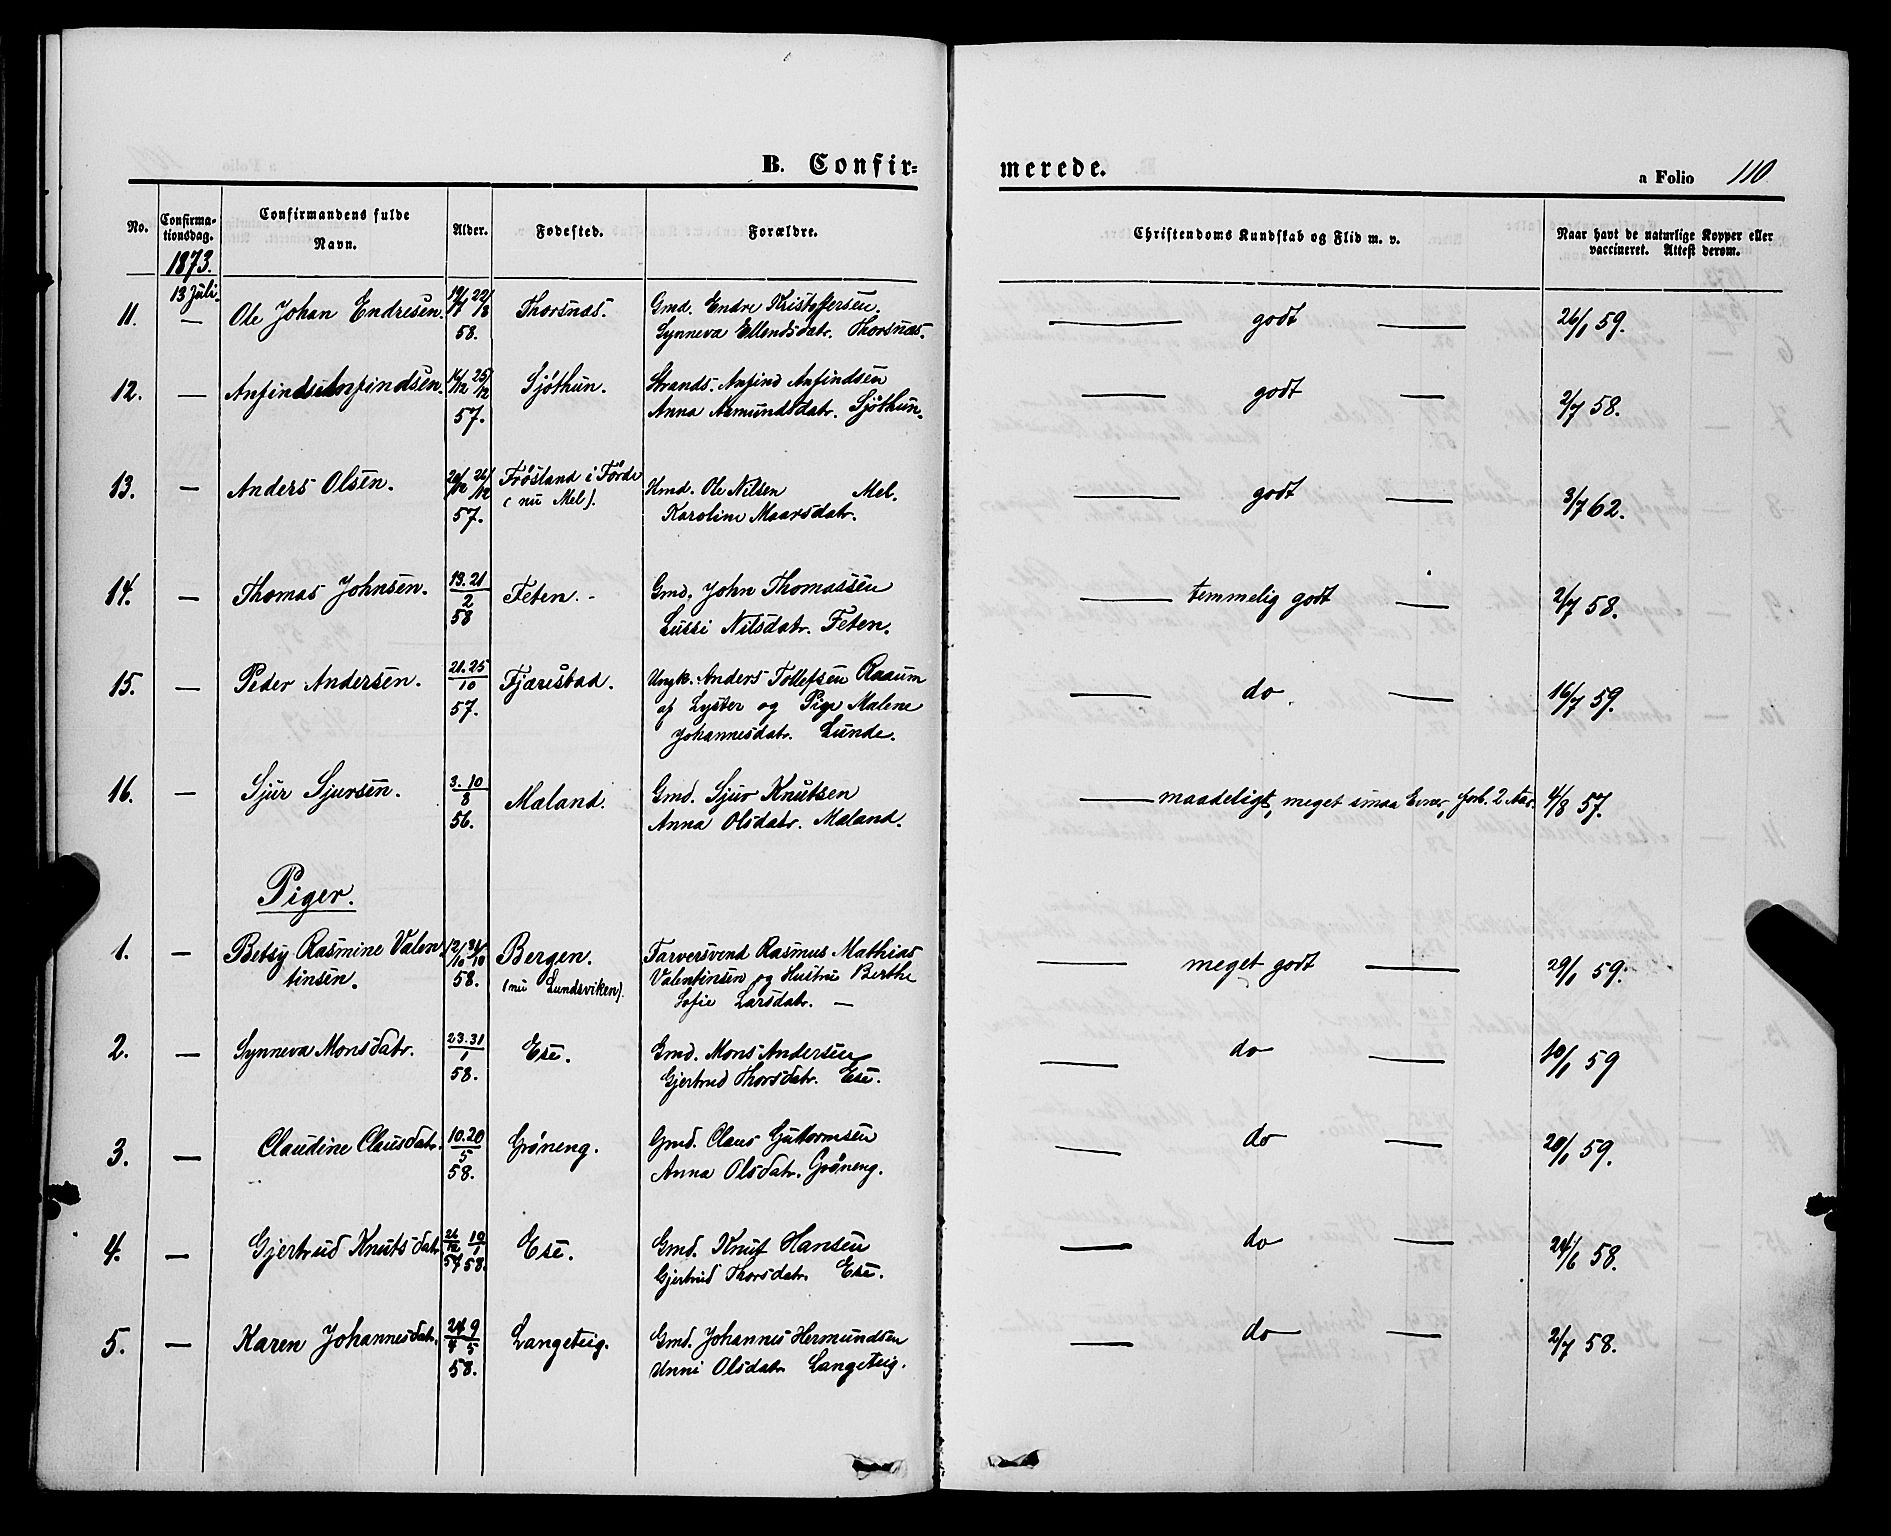 B. Confir=
merede.
a Folio 110
No.
Confirma-
tionsdag.
Confirmandens fulde
Navn.
Alder.
Fødested.
Forældre.
Christendoms Kundskab og Flid m. v.
Naar havt de naturlige Kopper eller
vaccineret. Attest derom.
1873.
13 Juli
11. — Ole Johan Endresen. 58. Thorsnæs. Gmd. Endre Kristoffersen. — godt — 26/1 59.
Synneva Ellendsdatr. Thorsnæs.
12. — Anfindsen. 16/12 25/12 57. Sjøthun. Strands. Anfind Anfindsen — godt — 2/7 58.
Anna Asmundsdatr. Sjøthun.
13. — Anders Olsen. 20/12 26/12 57. Frøsland i Førde Hmd. Ole Nilsen Mel. — godt — 3/7 62.
(nu Mel). Karoline Maarsdatr.
14. — Thomas Johnsen. 13. 21/2 58 Feten. Gmd. John Thomassen — temmelig godt — 2/7 58.
Lussi Nilsdatr. Feten.
15. — Peder Andersen. 21. 25/10 57. Fjærestad. Ungk. Anders Tollefsen Raaum — do. — 16/7 59.
af Lyster og Pige Malene
Johannesdatr. Lunde.
16. — Sjur Sjursen. 3. 10/8 56. Mæland. Gmd. Sjur Knutsen — maadeligt, meget smaa Evner, forb. 2 Aar. 4/8 57.
Anna Olsdatr. Mæland.
Piger.
1. — Betsy Rasmine Valen 12/10 31/10 58. Bergen. Farversvend Rasmus Mathias — meget godt — 29/1 59.
tinsen. (nu Lundsviken). Valentinsen og Hustru Berthe
Sofie Larsdatr. —
2. — Synneva Monsdatr. 23. 31/1 58. Ese. Gmd. Mons Andersen — do — 10/1 59
Gjertrud Thorsdatr. Ese.
3. — Claudine Clausdatr. 10. 20/5 58. Grøneng. Gmd. Claus Guttormsen — do — 20/1 59.
Anna Olsdatr. Grøneng.
4. — Gjertrud Knutsdatr 26/12 57 10/1 58. Ese. Gmd. Knut Hansen — do — 24/6 58.
Gjertrud Thorsdatr. Ese.
5. — Karen Johannesdatr. 24/4 9/5 58. Langeteig. Gmd. Johannes Hermundsen — do — 2/7 58.
Unni Olsdatr Langeteig.